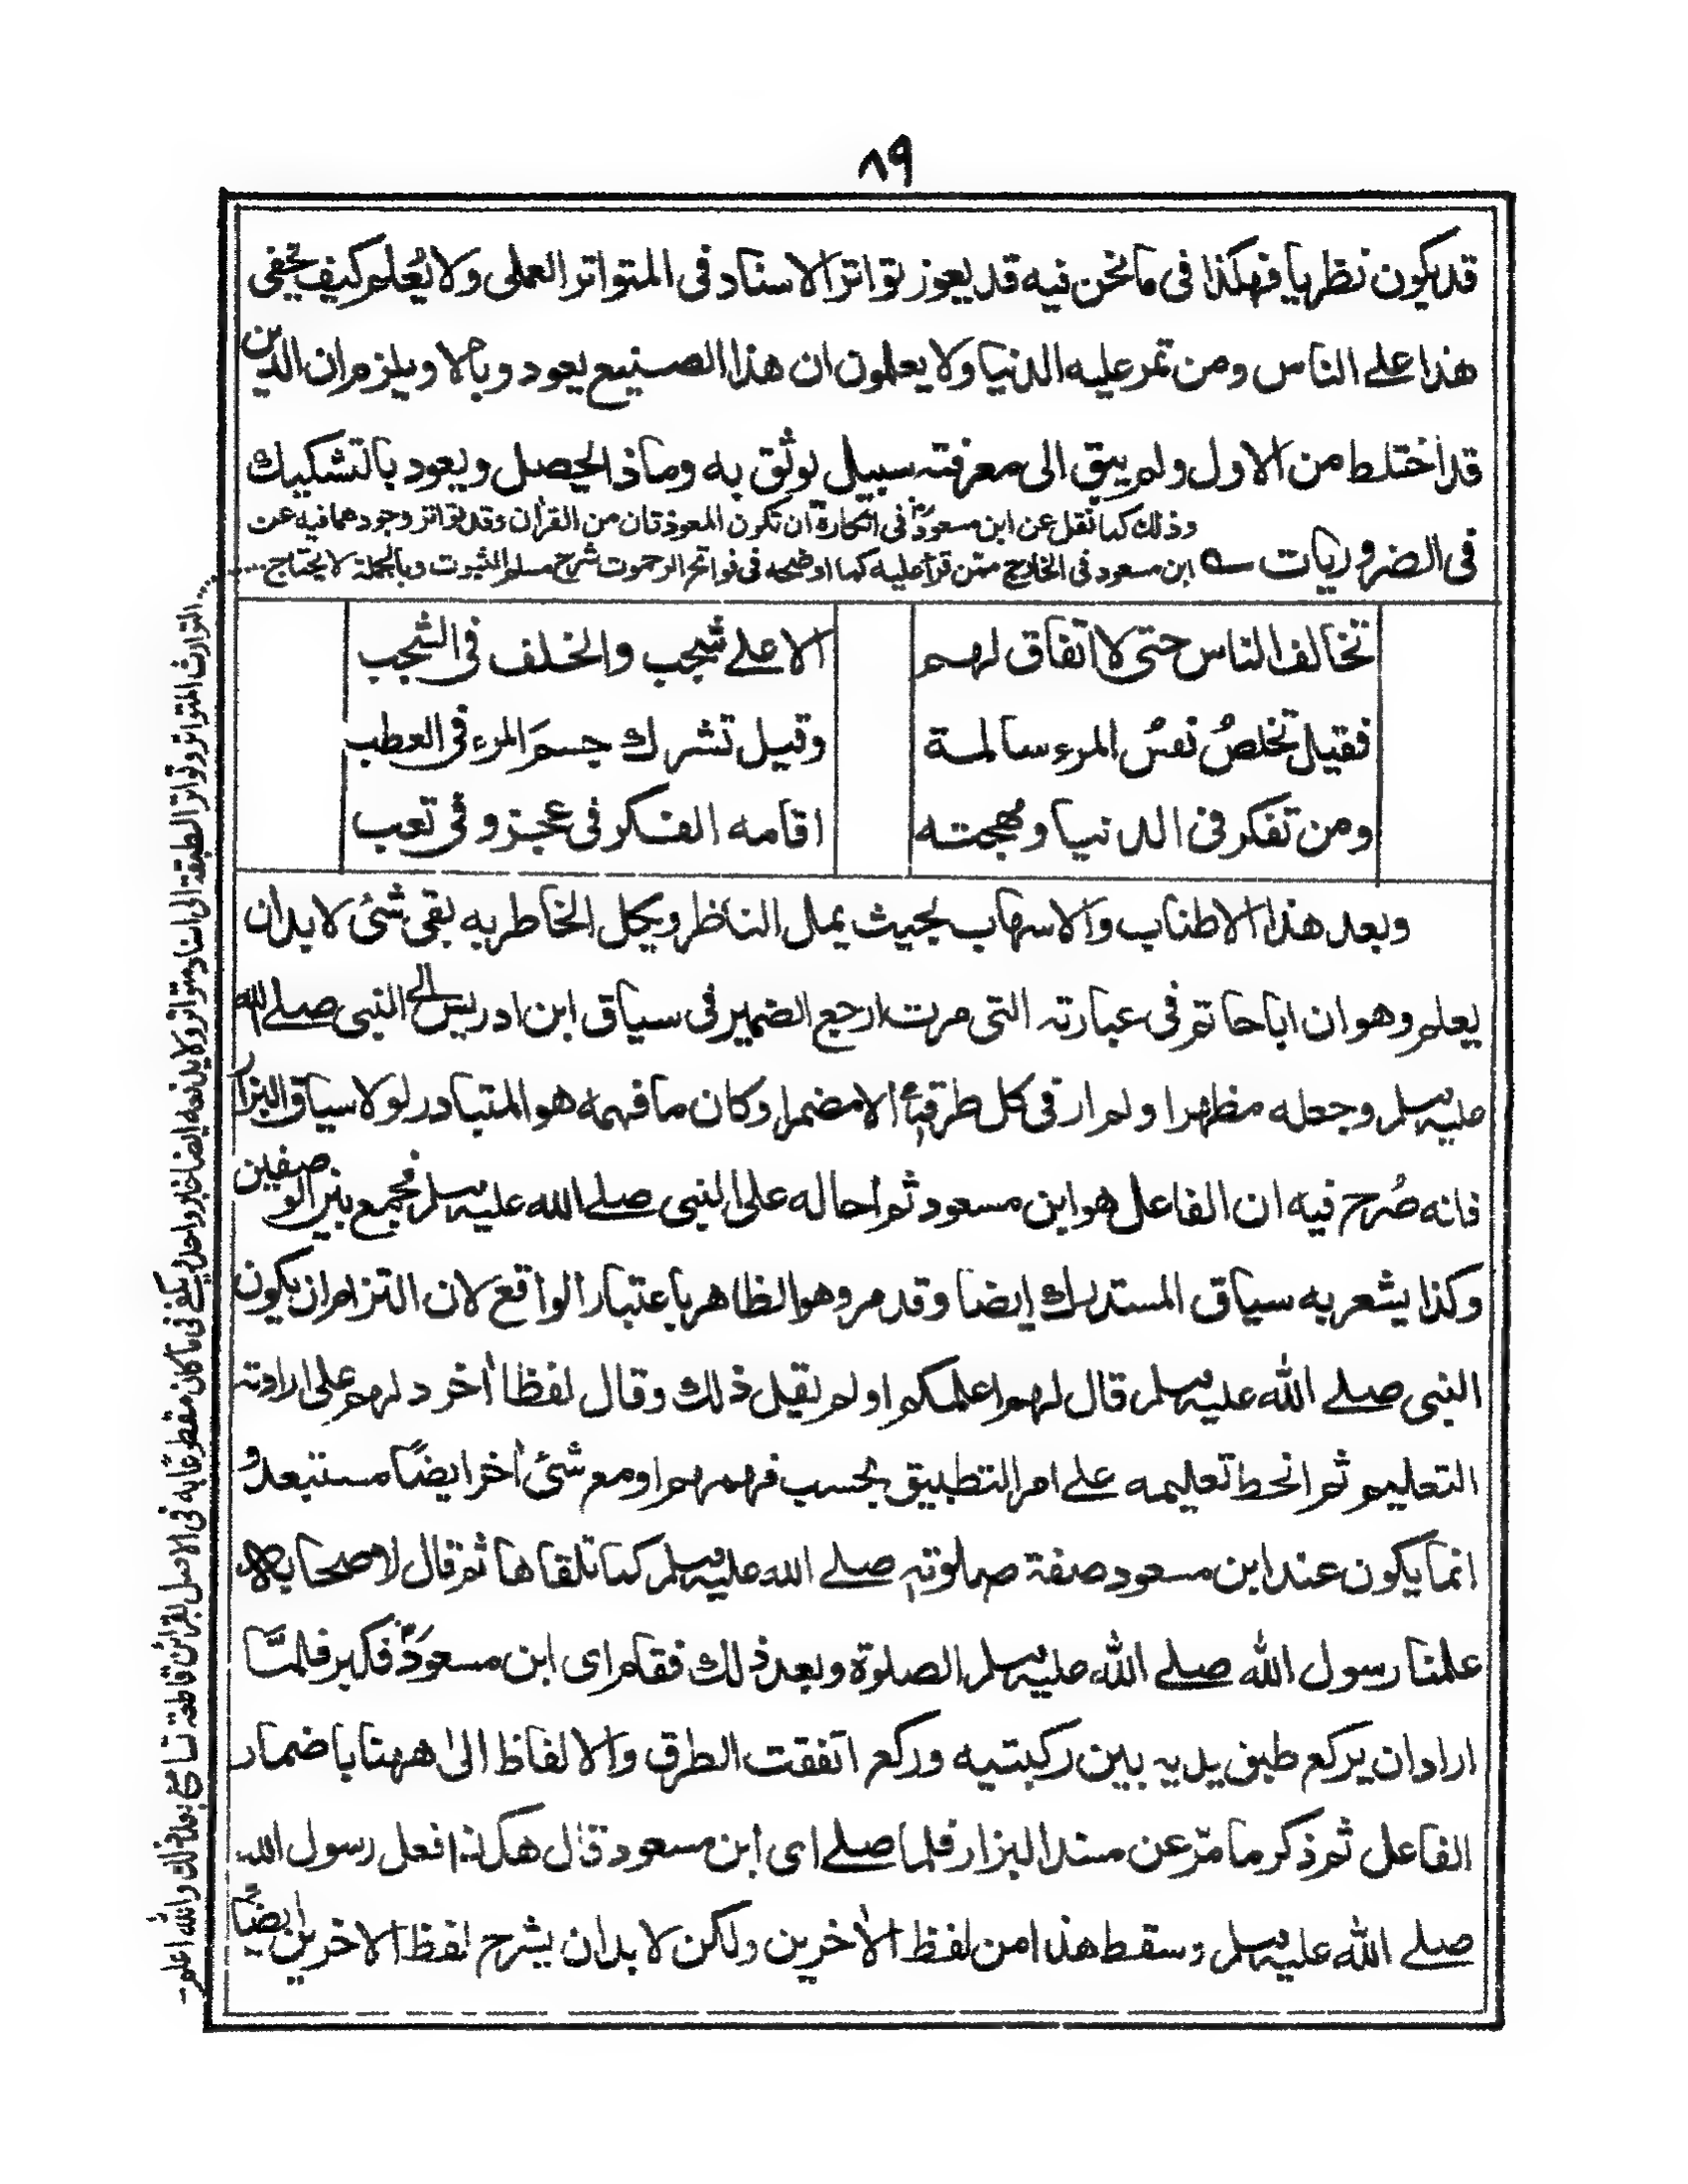 ٨٩
قد يكون نظريا فهكذا فى ما نحن فيه قد يعوز تواتر الاسناد فى المتواتر العملى ولا يُعلم كيف يخفى
هذا على الناس ومن تمر عليه الدنيا ولا يعلمون ان هذا الصنيع يعود وبالا ويلزم ان الدين
قد اختلط من الاول ولم يبق الى معرفته سبيل يوثق به وماذا يحصل ويعود بالتشكيك
فى الضروريات ــه
وذلك كما نقل عن ابن مسعودؓ فى انكاره ان تكون المعوذتان من القراٰن وقد تواتر وجودهما فيه عن
ابن مسعود فى الخارج ممن قرأ عليه كما اوضحه فى فواتح الرحموت شرح مسلم الثبوت وبالجملة لا يحتاج....
تخالف الناس حتى لا اتفاق لهم
الا على شجب والخلف فى الشجب
فقيل تخلصُ نفسُ المرء سالمة
وقيل تشرك جسمَ المرء فى العطب
ومن تفكر فى الدنيا ومهجته
اقامه الفكر فى عجز وفى تعب
وبعد هذا الاطناب والاسهاب بحيث يمل الناظر ويكل الخاطر به بقى شئ لا بد ان
يعلم وهو ان ابا حاتم فى عبارته التى مرت ارجع الضمير فى سياق ابن ادريس الى النبى صلے الله
عليه وسلم وجعله مظهرا ولم ار فى كل طرقه الا مضمرا وكان ما فهمه هو المتبادر لولا سياق البزار
فانه صُرح فيه ان الفاعل هو ابن مسعود ثم احاله على النبى صلے الله عليه وسلم فجمع بين الوصفين
وكذا يشعر به سياق المستدرك ايضا وقد مر وهو الظاهر باعتبار الواقع لان التزام ان يكون
النبى صلے الله عليه وسلم قال لهم اعلمكم او لم يقل ذلك وقال لفظا اٰخر د لهم على ارادته
التعليم ثم انحط تعليمه علے امر التطبيق بحسب فهمهم او مع شئ اٰخر ايضًا مستبعد و
انما يكون عند ابن مسعود صفة صلوته صلے الله عليه وسلم كما تلقاها ثم قال لاصحابه الا
علمنا رسول الله صلے الله عليه وسلم الصلوة وبعد ذلك فقام اى ابن مسعودؓ فكبر فلمّا
اراد ان يركع طبق يديه بين ركبتيه وركع اتفقت الطرق والالفاظ الىٰ ههنا باضمار
الفاعل ثم ذكر ما مرّ عن مسند البزار فلما صلے اى ابن مسعود قال هكذا فعل رسول الله
صلے الله عليه وسلم وسقط هذا من لفظ الاٰخرين ولكن لا بد ان يشرح لفظ الاٰخرين ايضًا
التوارث المتواتر وتواتر الطبقة الى اسناد متواتر ولا يدفعه ايضا خبر واحد يكفى فى ما كان مقطوعًا به فى الاصل بقرائن قاطعة بعد ذلك والله اعلم